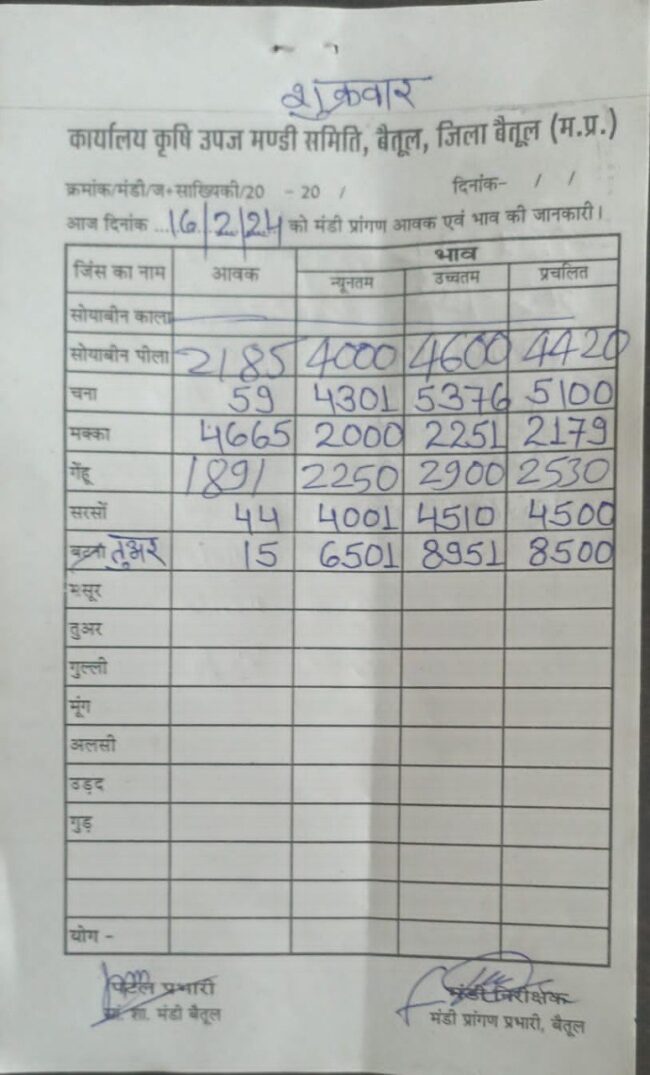 शुक्रवार
कार्यालय कृषि उपज मण्डी समिति, बैतूल, जिला बैतूल (म.प्र.)
क्रमांक/मंडी/ज+साख्यिकी/20 - 20 / दिनांक- / /
आज दिनांक ...16/2/24 को मंडी प्रांगण आवक एवं भाव की जानकारी।
जिंस का नाम आवक भाव
न्यूनतम उच्चतम प्रचलित
सोयाबीन काला
सोयाबीन पीला 2185 4000 4600 4420
चना 59 4301 5376 5100
मक्का 4665 2000 2251 2179
गेंहू 1891 2250 2900 2530
सरसों 44 4001 4510 4500
तुअर 15 6501 8951 8500
मसूर
तुअर
गुल्ली
मूंग
अलसी
उड़द
गुड़
योग -
प्रभारी मंडी निरीक्षक
शा. मंडी बैतूल मंडी प्रांगण प्रभारी, बैतूल